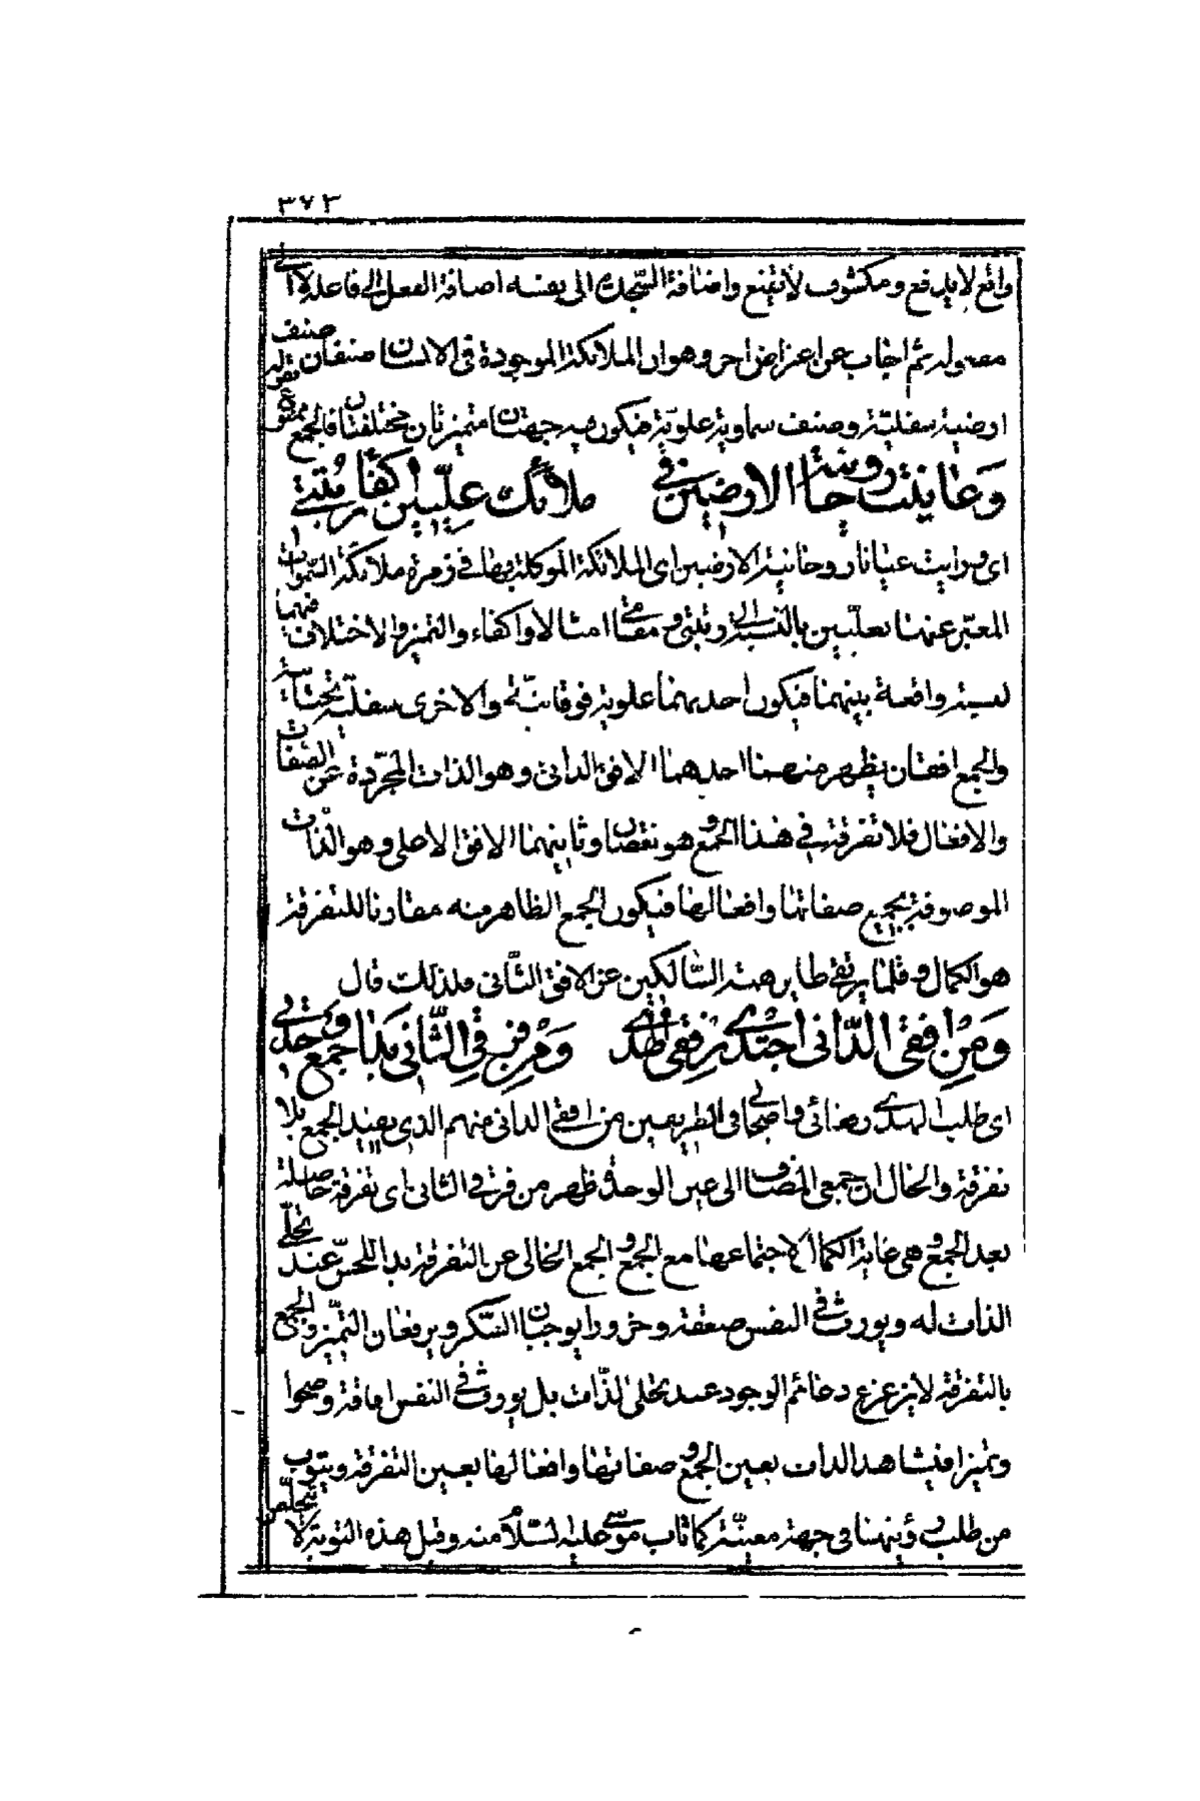 ٣٧٣
واقع لا يدفع ومكشوف لا يقنع واضافة السجدة الى نفسه اضافة الفعل الى فاعله لا الى
مفعوله ثم اجاب عن اعتراض اخر وهو ان الملائكة الموجودة في الانسان صنفان صنف
ارضية سفلية وصنف سماوية علوية فيكون فيه جهتان متميزتان مختلفتان فالجمع
وعاينت روحانية الارضين في ملائك عليين اكفاء رتبتي
اى ورايت عيانا روحانية الارضين اى الملائكة الموكلة بها في زمرة ملائكة السموات
المعبر عنها بعليين بالنسبة الى رتبتي ومقامي امثالا واكفاء والتميز والاختلاف فيهما
نسبية واقعة بينهما فيكون احديهما علوية فوقانية والاخرى سفلية تحتانية
والجمع افقان يظهر منهما احدهما الافق الدانى وهو الذات المجردة عن الصفات
والافعال فلا تفرقة في هذا الجمع وهو نقصان وثانيهما الافق الاعلى وهو الذات
الموصوفة بجميع صفاتها وافعالها فيكون الجمع الظاهر منه مقارنا للتفرقة
هو الكمال وقلما يرتقى طاير همة السالكين عن الافق الثانى فلذلك قال
ومن افقى الدانى اجتدى رفقى الهدى ومن فرقى الثانى بدا جمع وحدتى
اى طلب الهدى رفقائى واصحابى في الطريق من افقى الدانى منهم الذى يفيد الجمع بلا
تفرقة والحال ان جمعى المضاف الى عين الوحدة ظهر من فرقى الثانى اى تفرقة حاصلة
بعد الجمع وهى غاية الكمال لاجتماعها مع الجمع والجمع الخالى عن التفرقة يدا للحس عند تجلى
الذات له ويورث في النفس صعقة وخرورا يوجبان السكر ويرفعان التميز والجمع
بالتفرقة لا يزعزع دعائم الوجود عند تجلى الذات بل يورث في النفس افاقة وصحوا
وتميزا فيشاهد الذات بعين الجمع وصفاتها وافعالها بعين التفرقة ويتوب
من طلب رؤيتها في جهة معينة كما تاب موسى عليه السلام منه وقبل هذه التوبة لا يتخلص